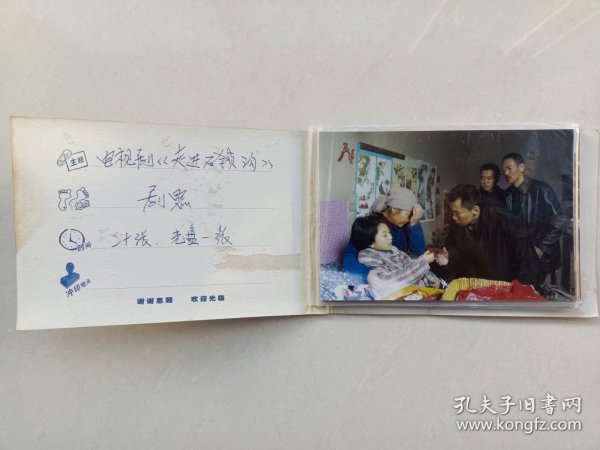 主题 电视剧《走进石领沟》
剧照
时间 二十张、光盘一张
冲印地点
谢谢惠顾 欢迎光临
孔夫子旧书网
www.kongfz.com